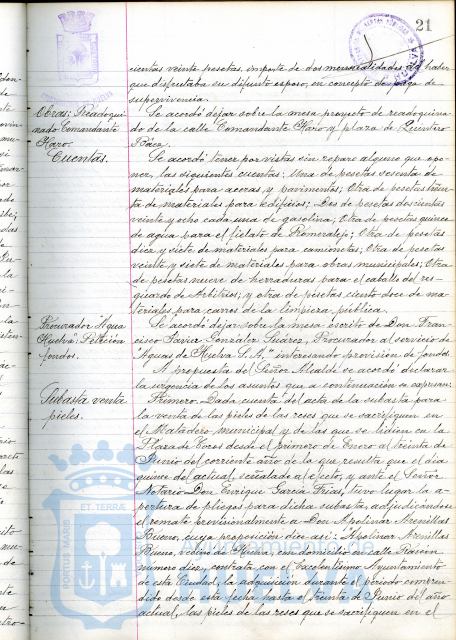 21
cientas veinte pesetas importe de dos mensualidades del haber
que disfrutaba su difunto esposo, en concepto de paga de
supervivencia.
Obras: Readoqui-
nado Comandante
Haro.
Se acordó dejar sobre la mesa proyecto de readoquina-
do de la calle Comandante Haro y plaza de Quintero
Báez.
Cuentas.
Se acordó tener por vistas sin reparo alguno que opo-
ner, las siguientes cuentas: Una de pesetas sesenta de
materiales para aceras y pavimentos; Otra de pesetas trein-
ta de materiales para edificios; Dos de pesetas doscientas
veinte y ocho cada una de gasolina; Otra de pesetas quince
de agua para el fielato de Romeralejo; Otra de pesetas
diez y siete de materiales para camionetas; Otra de pesetas
veinte y siete de materiales para obras municipales; Otra
de pesetas nueve de herraduras para el caballo del res-
guardo de Arbitrios; y otra de pesetas ciento doce de ma-
teriales para carros de la limpieza pública.
Procurador "Agua
Huelva": Petición
fondos.
Se acordó dejar sobre la mesa escrito de Don Fran-
cisco Javier González Suárez, Procurador al servicio de
"Aguas de Huelva S.A.", interesando provisión de fondos.
A propuesta del Señor Alcalde se acordó declarar
la urgencia de los asuntos que a continuación se expresan:
Subasta venta
pieles.
Primero. Dada cuenta del acta de la subasta para
la venta de las pieles de las reses que se sacrifiquen en
el Matadero municipal y de las que se lidien en la
Plaza de Toros desde el primero de Enero al treinta de
Junio del corriente año de la que resulta que el día
quince del actual, señalado al efecto, y ante el Señor
Notario Don Enrique García Frías, tuvo lugar la a-
pertura de pliegos para dicha subasta, adjudicándose
el remate provisionalmente a Don Apolinar Arenillas
Bueno, cuya proposición dice así: "Apolinar Arenillas
Bueno, vecino de Huelva, con domicilio en calle Rascón
número diez, contrata con el Excelentísimo Ayuntamiento
de esta Ciudad, la adquisición durante el período compren-
dido desde esta fecha hasta el treinta de Junio del año
actual, las pieles de las reses que se sacrifiquen en el
PORTUS MARIS
ET TERRAE
Ayuntamiento